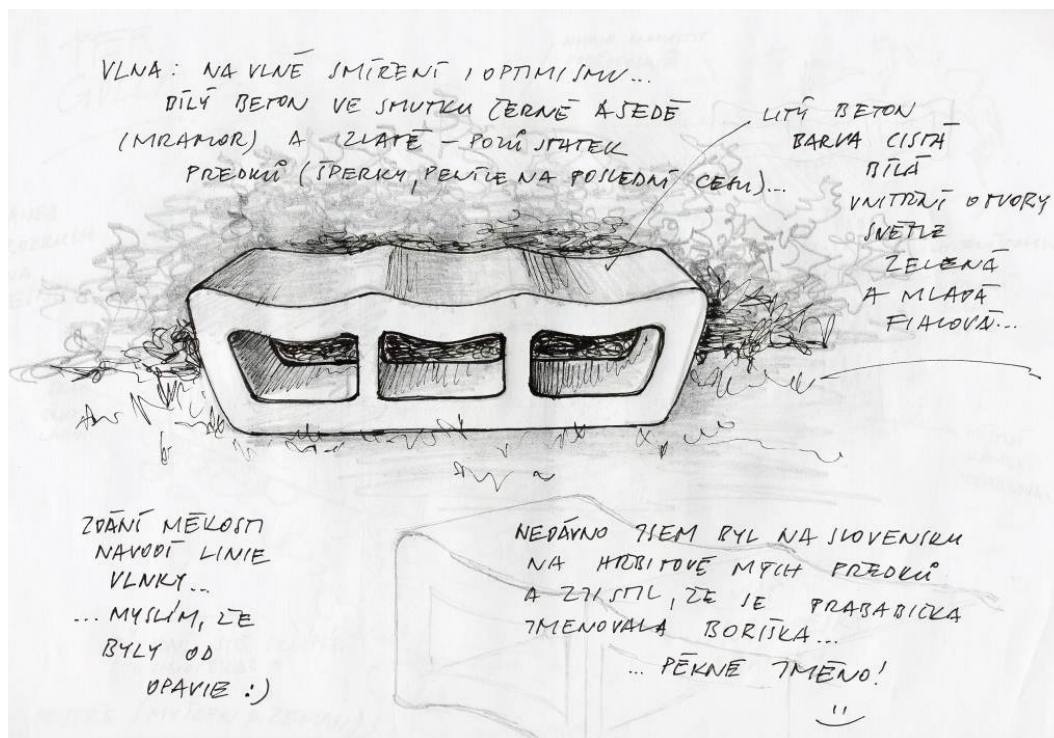 VLNA: NA VLNĚ SMÍŘENÍ I OPTIMISMU...
BÍLÝ BETON VE SMUTKU ČERNÉ A ŠEDÉ
(MRAMOR) A ZLATÉ – POZŮSTATEK
PŘEDKŮ (ŠPERKY, PENÍZE NA POSLEDNÍ CESTU)...
LITÝ BETON
BARVA ČISTÁ
BÍLÁ
VNITŘNÍ OTVORY
SVĚTLE
ZELENÁ
A MLADÁ
FIALOVÁ...
ZDÁNÍ MĚKOSTI
NAVODÍ LINIE
VLNKY...
...MYSLÍM, ŽE
BYLY OD
OPAVIE :)
NEDÁVNO JSEM BYL NA SLOVENSKU
NA HŘBITOVĚ MÝCH PŘEDKŮ
A ZJISTIL, ŽE SE PRABABIČKA
JMENOVALA BORIŠKA...
...PĚKNÉ JMÉNO!